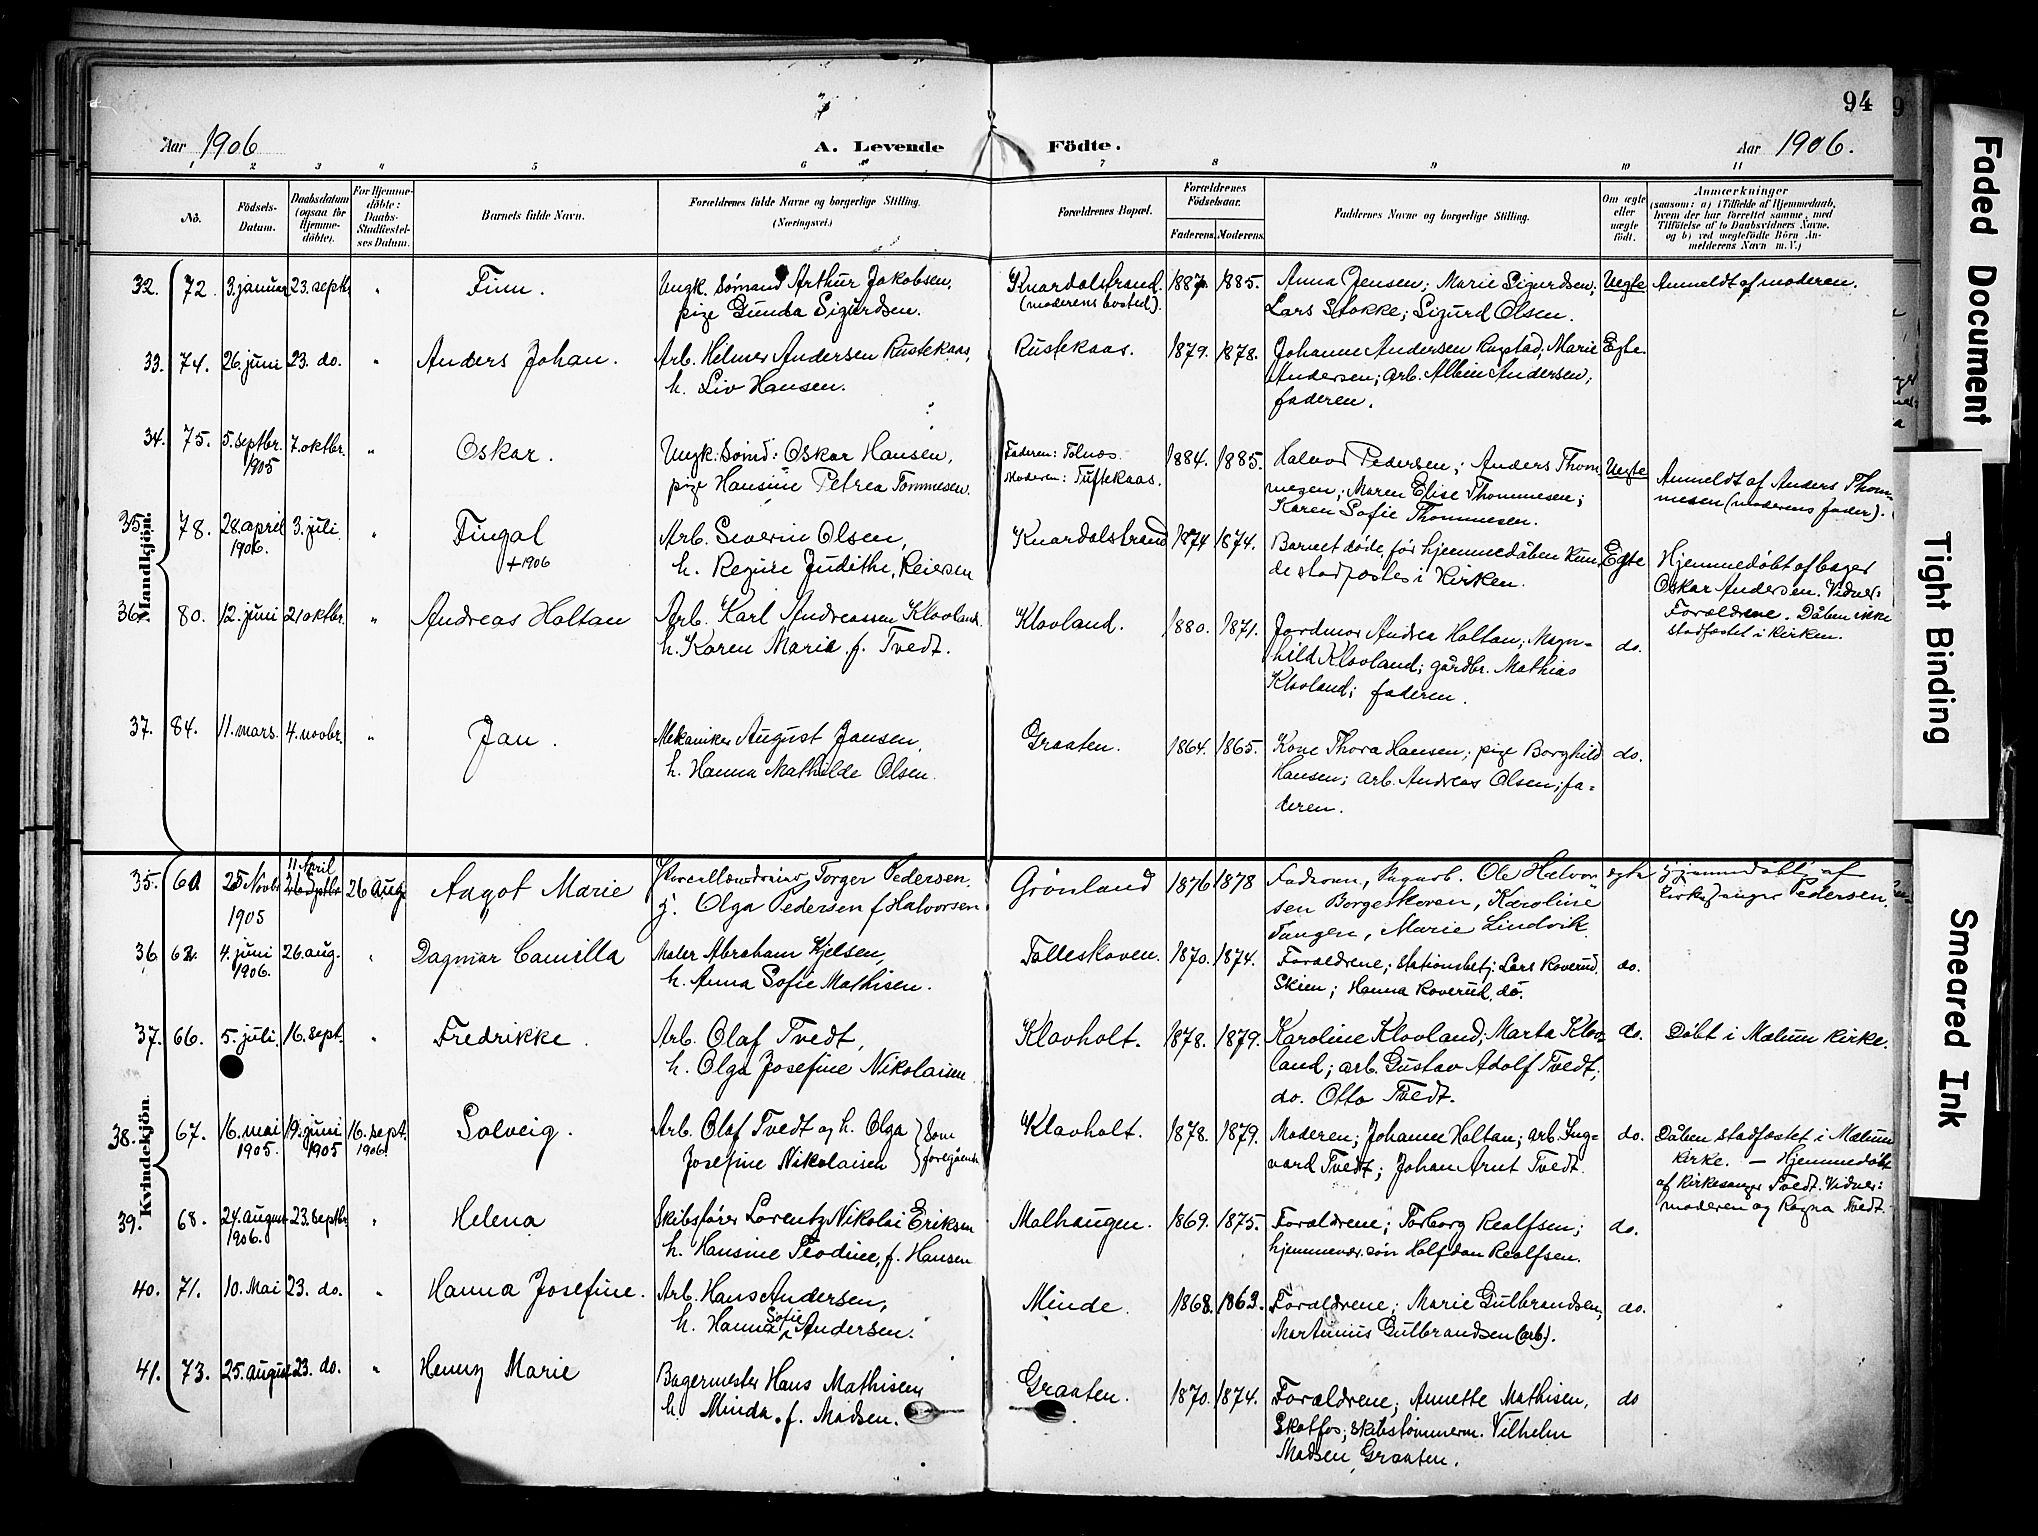 94
Aar 1906
A. Levende Födte.
Aar 1906.
1 2 3 4 5 6 7 8 9 10 11
No.
Födsels-Datum.
Daabsdatum (ogsaa for Hjemme-döbte).
For Hjemme-döbte: Daabs-Stadfæstel-ses Datum.
Barnets fulde Navn.
Forældrenes fulde Navne og borgerlige Stilling. (Næringsvei.)
Forældrenes Bopæl.
Forældrenes Födselsaar.
Faderens. Moderens.
Faddernes Navne og borgerlige Stilling.
Om ægte eller uægte födt.
Anmærkninger
(saasom: a) i Tilfælde af Hjemmedaab, hvem der har forrettet samme, med Tilföielse af to Daabsvidners Navne. og b) ved uægtefödte Börn An-melderens Navn m. V.)
Mandkjön.
32. 72. 3. januar 23. septbr. " Finn. Ungk. Sømand Arthur Jakobsen, Knardalstrand. 1887 1885. Anna Jensen; Marie Sigurdsen; Uegte Anmeldt af moderen.
pige Gunda Sigurdsen. (moderens bosted). Lars Stokke; Sigurd Olsen.
33. 74. 26. juni 23. do. " Anders Johan. Arb. Helmer Andersen Rustekaas, Rustekaas. 1879. 1878. Johanne Andersen Rugstad; Marie Egte.
h. Liv Hansen. Andersen; arb. Albin Andersen;
faderen.
34. 75. 5. septbr. 7. oktbr. " Oskar. Ungk. Sømd: Oskar Hansen, Faderen: Tolnæs. 1884. 1885. Halvor Pedersen; Anders Thom- Uegte Anmeldt af Anders Thom-
1905 pige Hansine Petrea Tommesen. Moderen: Tuftekaas. mesen; Maren Elise Thommesen; mesen (moderens fader).
Karen Sofie Thommesen.
35. 78. 28. april 3. juli. " Fingal Arb. Severin Olsen, Knardalstrand 1874 1874. Barnet døde, før hjemmedåben kun- Egte Hjemmedøbt af bager
1906. +1906 h. Regine Judithe, Reiersen de stadfæstes i Kirken. Oskar Andersen. Vidner:
Forældrene. Dåben ikke
stadfæstet i kirken.
36. 80. 12. juni 21 oktbr. " Andreas Holtan Arb. Karl Andreassen Klovland. Klovland. 1880. 1871. Jordmor Andrea Holtan; Magn- do.
h. Karen Marie f. Tvedt. hild Klovland; gårdbr. Mathias
Klovland; faderen.
37. 84. 11. mars. 4. novbr. " Jan. Mekaniker August Jansen, Graaten. 1864. 1865. Kone Thora Hansen; pige Borghild do.
h. Hanna Mathilde Olsen. Hansen; arb. Andreas Olsen; fa-
deren.
Kvindekjön.
11 April
35. 60 25 Novbr 26 Septbr 26 Aug. Aagot Marie Torger Pedersen. Grønland 1876 1878 Faderen, Ole Halvor- egte Hjemmedøbt af
1905 Olga Pedersen f Halvorsen sen Borgeskoven, Karoline Kirkesanger Pedersen.
Tangen, Marie Lindvik.
36. 62. 4. juni 26. aug. " Dagmar Camilla Maler Abraham Kjelsen, Tolleskoven. 1870. 1874. Forældrene; stationsbetj: Lars Roverud, do.
1906. h. Anna Sofie Mathisen. Skien; Hanna Roverud, do.
37. 66. 5. juli. 16. sept. " Fredrikke. Arb. Olaf Tvedt, Klovholt. 1878. 1879. Karoline Klovland; Marta Klov- do. Døbt i Mælum kirke.
h. Olga Josefine Nikolaisen. land; arb. Gustav Adolf Tvedt;
do. Otto Tvedt.
38. 67. 16. mai 19. juni 16. sept. Solveig. Arb. Olaf Tvedt og h. Olga } som Klovholt. 1878. 1879. Moderen; Johanne Holtan; arb. Ing- do. Dåben stadfæstet i Mælum
1905. 1905 1906. Josefine Nikolaisen foregående vard Tvedt; Johan Arnt Tvedt. kirke. — Hjemmedøbt
af kirkesanger Tvedt. Vidner:
moderen og Ragna Tvedt.
39. 68. 24. august 23. septbr. " Helena Skibsfører Lorentz Nikolai Eriksen Malhaugen. 1869. 1875. Forældrene; Torborg Realfsen; do.
1906. h. Hansine Teodine, f. Hansen hjemmevær. søn Halfdan Realfsen.
40. 71. 10. Mai 23. do. " Hanna Josefine. Arb. Hans Andersen, Minde. 1868. 1863. Forældrene; Marie Gulbrandsen, do.
h. Hanna Sofie Andersen. Martinius Gulbrandsen (arb).
41. 73. 25. august 23. do. " Henny Marie Bagermester Hans Mathisen, Graaten. 1870. 1874. Forældrene; Annette Mathisen, do
h. Minda. f. Madsen. Skotfos; skibstømmerm. Vilhelm
Madsen, Graaten.
Faded Document
Tight Binding
Smeared Ink